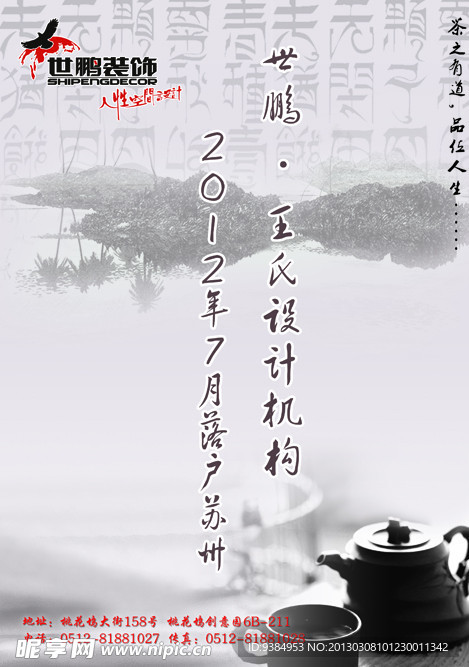 世鹏装饰
SHIPENGDECOR
人性空间设计
茶之有道，品位人生......
世鹏·王氏设计机构
2012年7月落户苏州
地址：桃花坞大街158号 桃花坞创意园6B-211
电话：0512-81881027 传真：0512-81881028
昵享网 www.nipic.cn
ID:9384953 NO:20130308101230011342